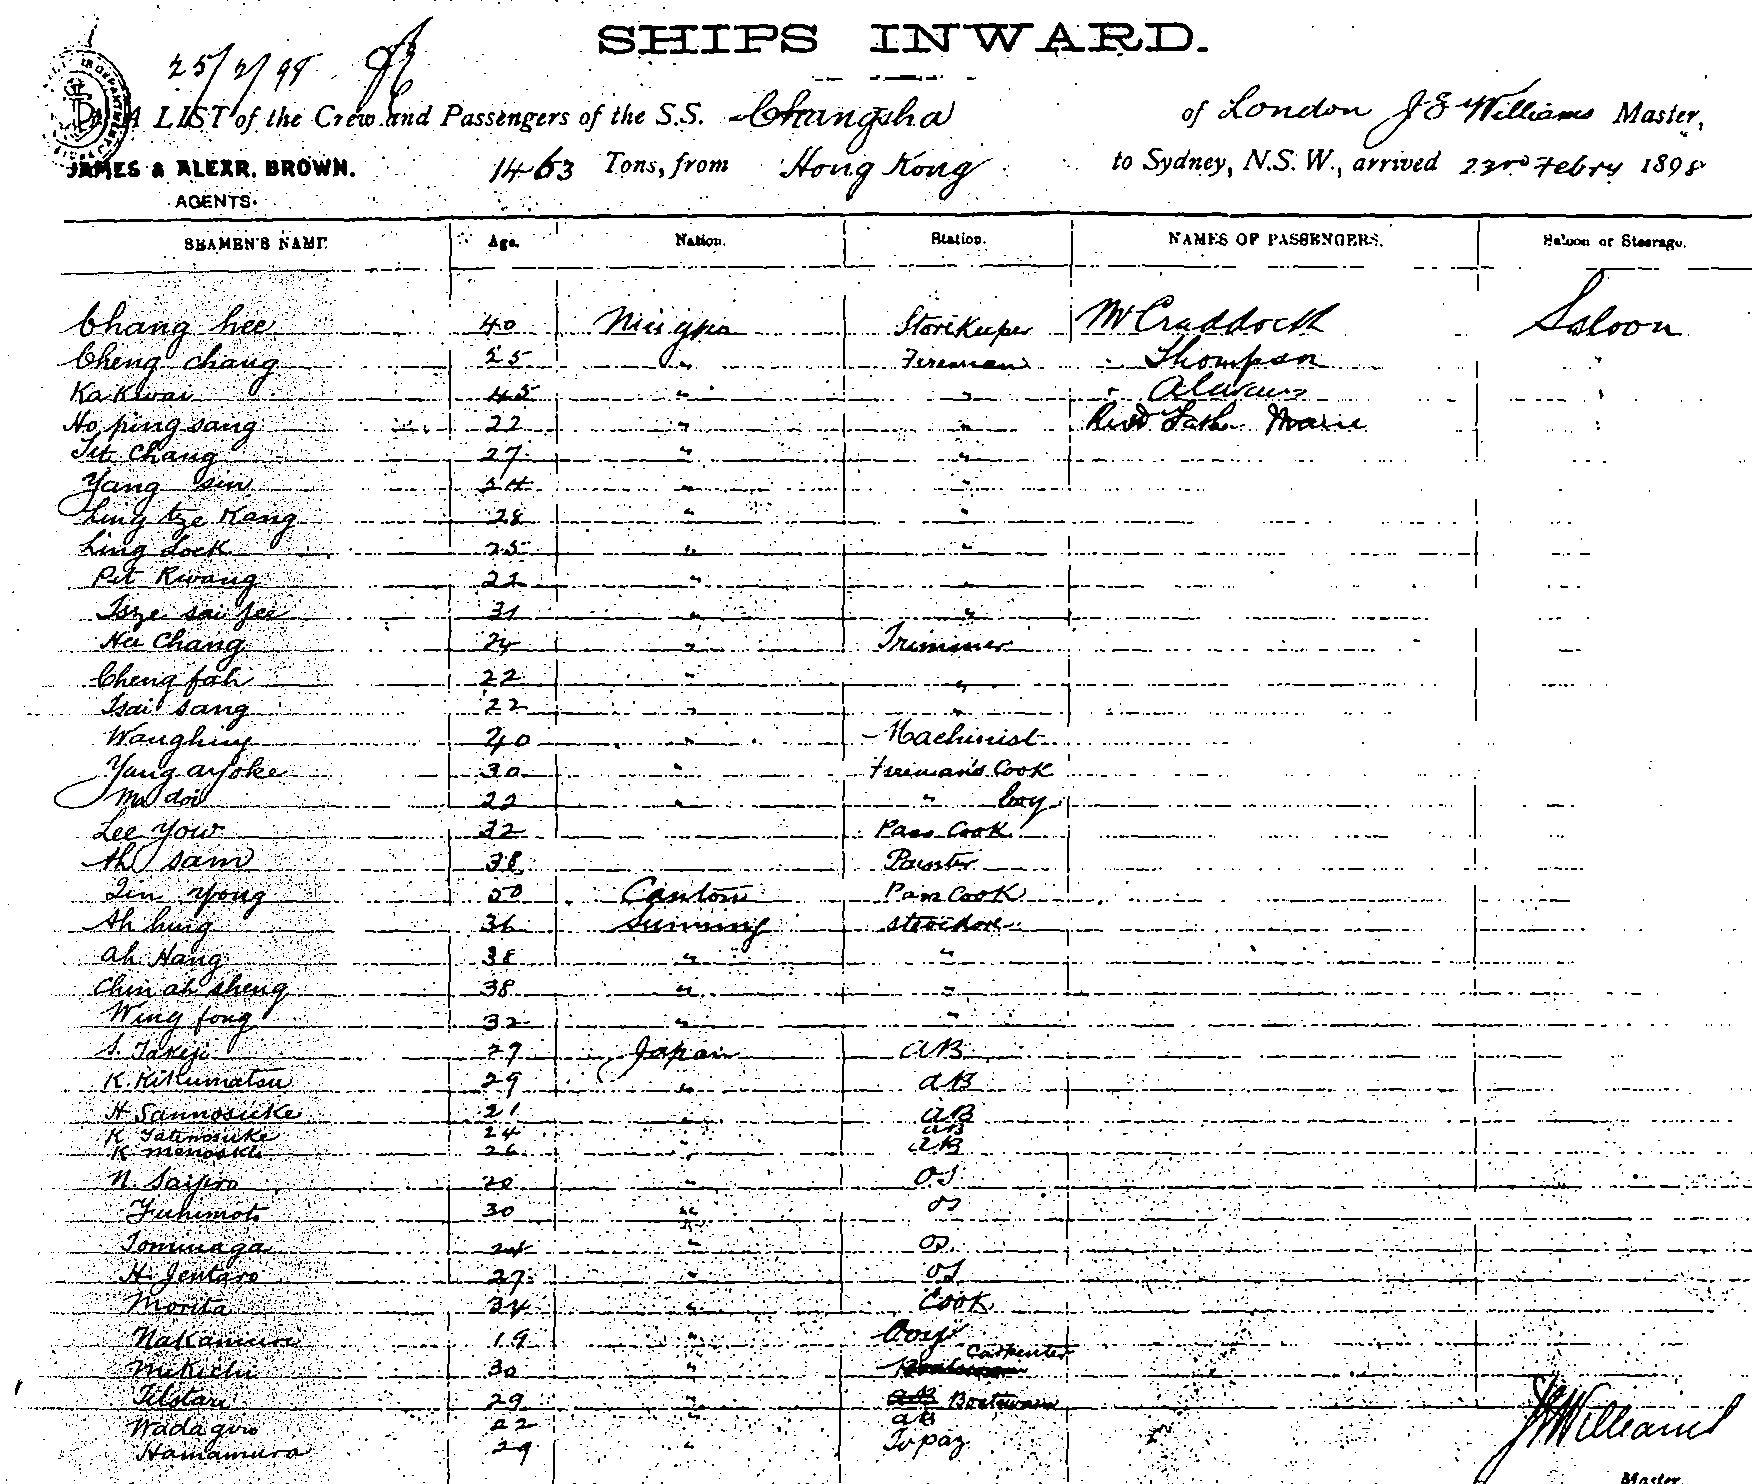 SHIPS INWARD.
25/2/98
A LIST of the Crew and Passengers of the S.S. Changsha of London J E Williams Master,
JAMES & ALEXR. BROWN. 1463 Tons, from Hong Kong to Sydney, N.S.W., arrived 23rd Febry 1898
AGENTS.
SEAMEN'S NAME Age. Nation. Station. NAMES OF PASSENGERS. Saloon or Steerage.
Chang hee 40 Ningpo Storekeeper Mr Craddock Saloon
Cheng chang 25 " Fireman " Thompson "
Ka Kwai 45 " " " "
Ho ping sang 22 " " Revd Father Marie "
Tit Chang 27 " "
Yang sin 24 " "
Ling tze Kang 28 " "
Ling Lock 25 " "
Pit Kwang 22 " "
Tsze sai fee 31 " "
Hee Chang 24 " Trimmer
Cheng fah 22 " "
Tsai sang 22 " "
Wanghing 40 " Machinist
Yang ayoke 30 " Fireman's Cook
Ma doi 22 " " boy
Lee Yow 32 Pass Cook
Ah Sam 38 Painter
Lin Yong 50 Canton Pass Cook
Ah hung 36 Sunning stevedore
Ah Hang 38 " "
Chin ah sheng 38 " "
Wing fong 32 " "
S. Tareji 29 Japan AB
K. Kikumatsu 29 " AB
H Sannosuke 21 " AB
K Tatenosuke 24 AB
K 26 " AB
N. Saijiro 20 " OS
Fuhimoto 30 " OS
Tominaga 24 " OS
H. Jentaro 27 " OS
Morita 34 " Cook
Nakamura 19 " Boy
Mekichi 30 " Carpenter
29 " AB Boatswain
Wadagoro 22 " AB
Hamamura 29 " Topaz
J E Williams
Master